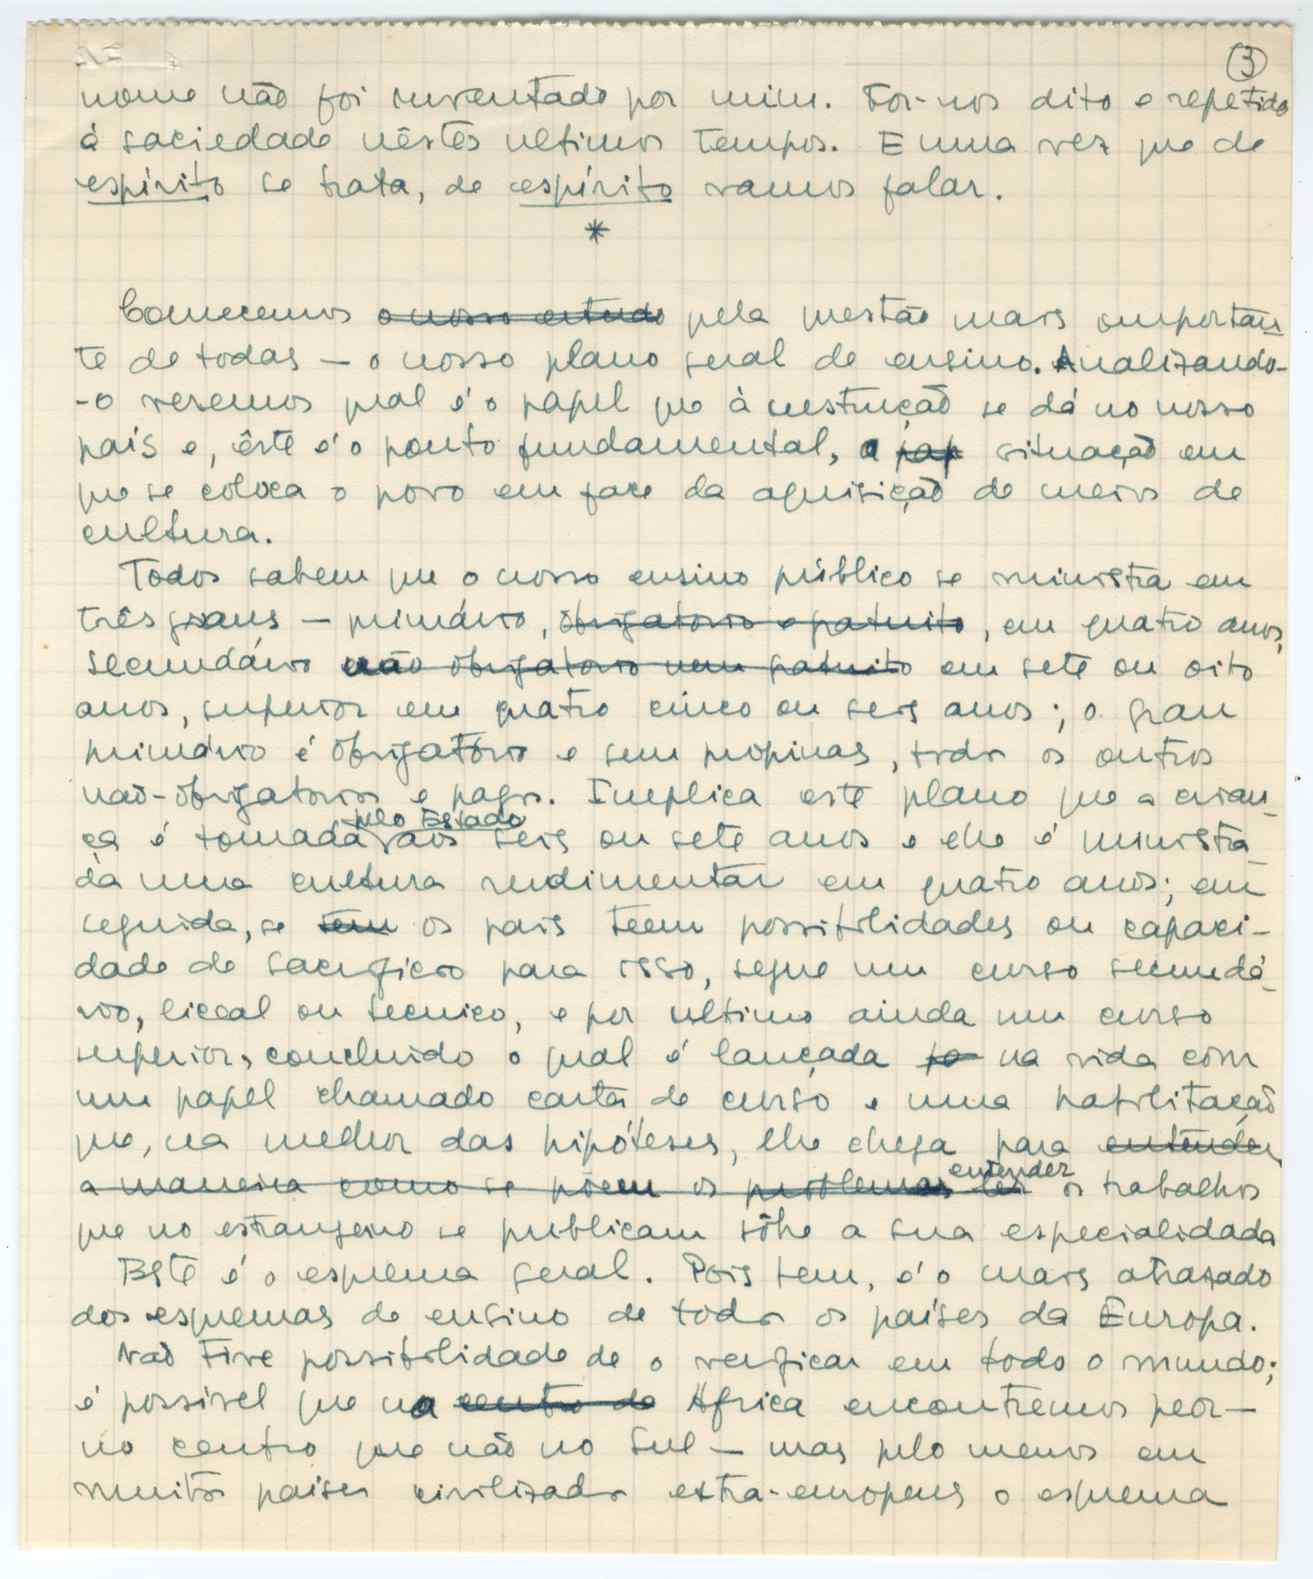 (3)
nome não foi inventado por mim. Foi-nos dito e repetido
à saciedade nêstes ultimos tempos. E uma vez que de
espírito se trata, de espírito vamos falar.
*
Comecemos o nosso estudo pela questão mais importan-
te de todas — o nosso plano geral de ensino. Analizando-
-o veremos qual é o papel que à instrução se dá no nosso
país e, êste é o ponto fundamental, a pap situação em
que se coloca o povo em face da aquisição de meios de
cultura.
Todos sabem que o nosso ensino público se ministra em
três graus — primário, obrigatorio e gratuito, em quatro anos,
secundário não obrigatorio nem gratuito em sete ou oito
anos, superior em quatro cinco ou seis anos; o grau
primário é obrigatório e sem propinas, todos os outros
não-obrigatorios e pagos. Implica este plano que a crian-
pelo Estado
ça é tomada aos seis ou sete anos e lhe é ministra-
da uma cultura rudimentar em quatro anos; em
seguida, se tem os pais teem possibilidades ou capaci-
dade de sacrificio para isso, segue um curso secundá-
rio, liceal ou tecnico, e por ultimo ainda um curso
superior, concluido o qual é lançada pa na vida com
um papel chamado carta de curso e uma habilitação
que, na melhor das hipóteses, lhe chega para entender
entender
a maneira como se põem os problemas ler os trabalhos
que no estrangeiro se publicam sôbre a sua especialidade
Este é o esquema geral. Pois bem, é o mais atrazado
dos esquemas de ensino de todos os países da Europa.
Não tive possibilidade de o verificar em todo o mundo;
é possivel que na centro de Africa encontremos peor —
no centro que não no Sul — mas pelo menos em
muitos paises civilizados extra-europeus o esquema